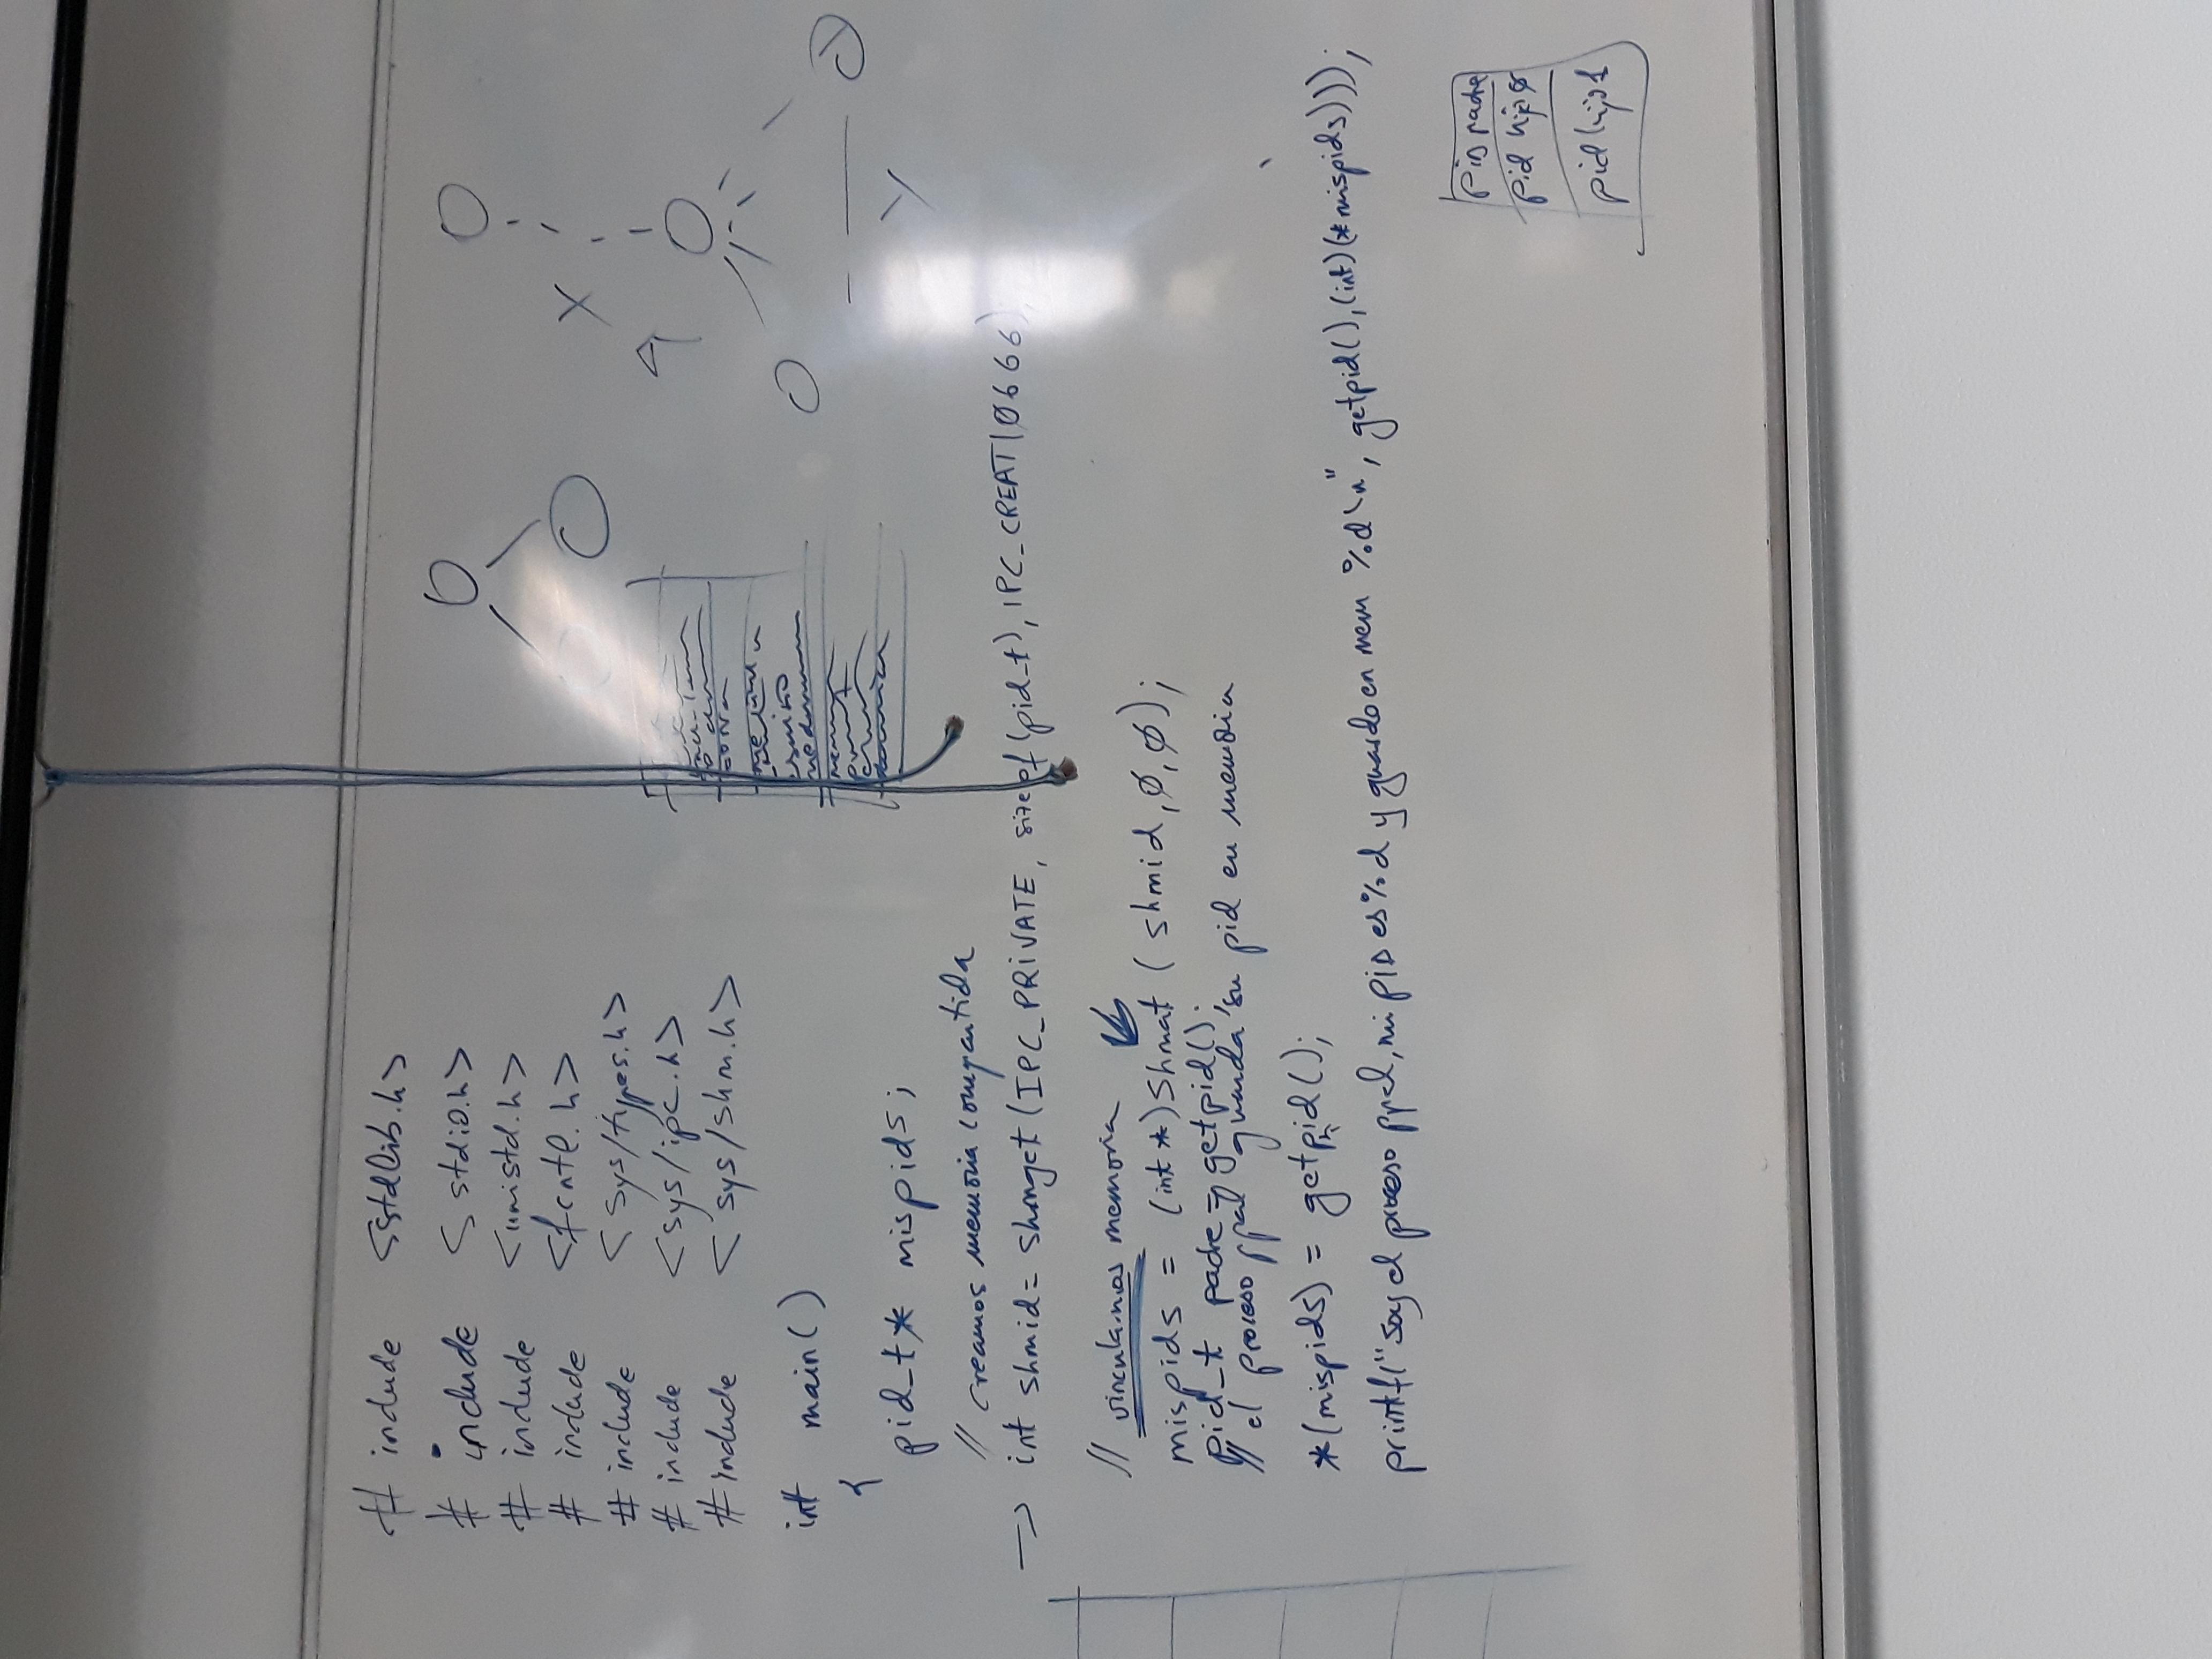 # include <stdlib.h>
# include <stdio.h>
# include <unistd.h>
# include <fcntl.h>
# include <sys/types.h>
# include <sys/ipc.h>
# include <sys/shm.h>
int main()
{
pid_t* mispids;
// creamos memoria compartida
-> int shmid= shmget (IPC_PRIVATE, sizeof(pid_t), IPC_CREAT|0666)
// vinculamos memoria
mispids = (int *) Shmat ( shmid, 0, 0);
pid_t padre = getpid();
// el proceso ppal guarda su pid en memoria
*(mispids) = getpid();
printf("soy el proceso ppal, mi PID es %d y guardo en mem %d \n", getpid(), (int)(*mispids)));
X
Y
PID padre
pid hijo 0
pid hijo 1